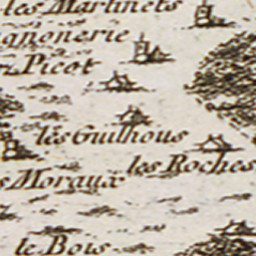 les Martinets
gnonerie
Picot
les Guilhous
les Roches
s Moraux
le Bois